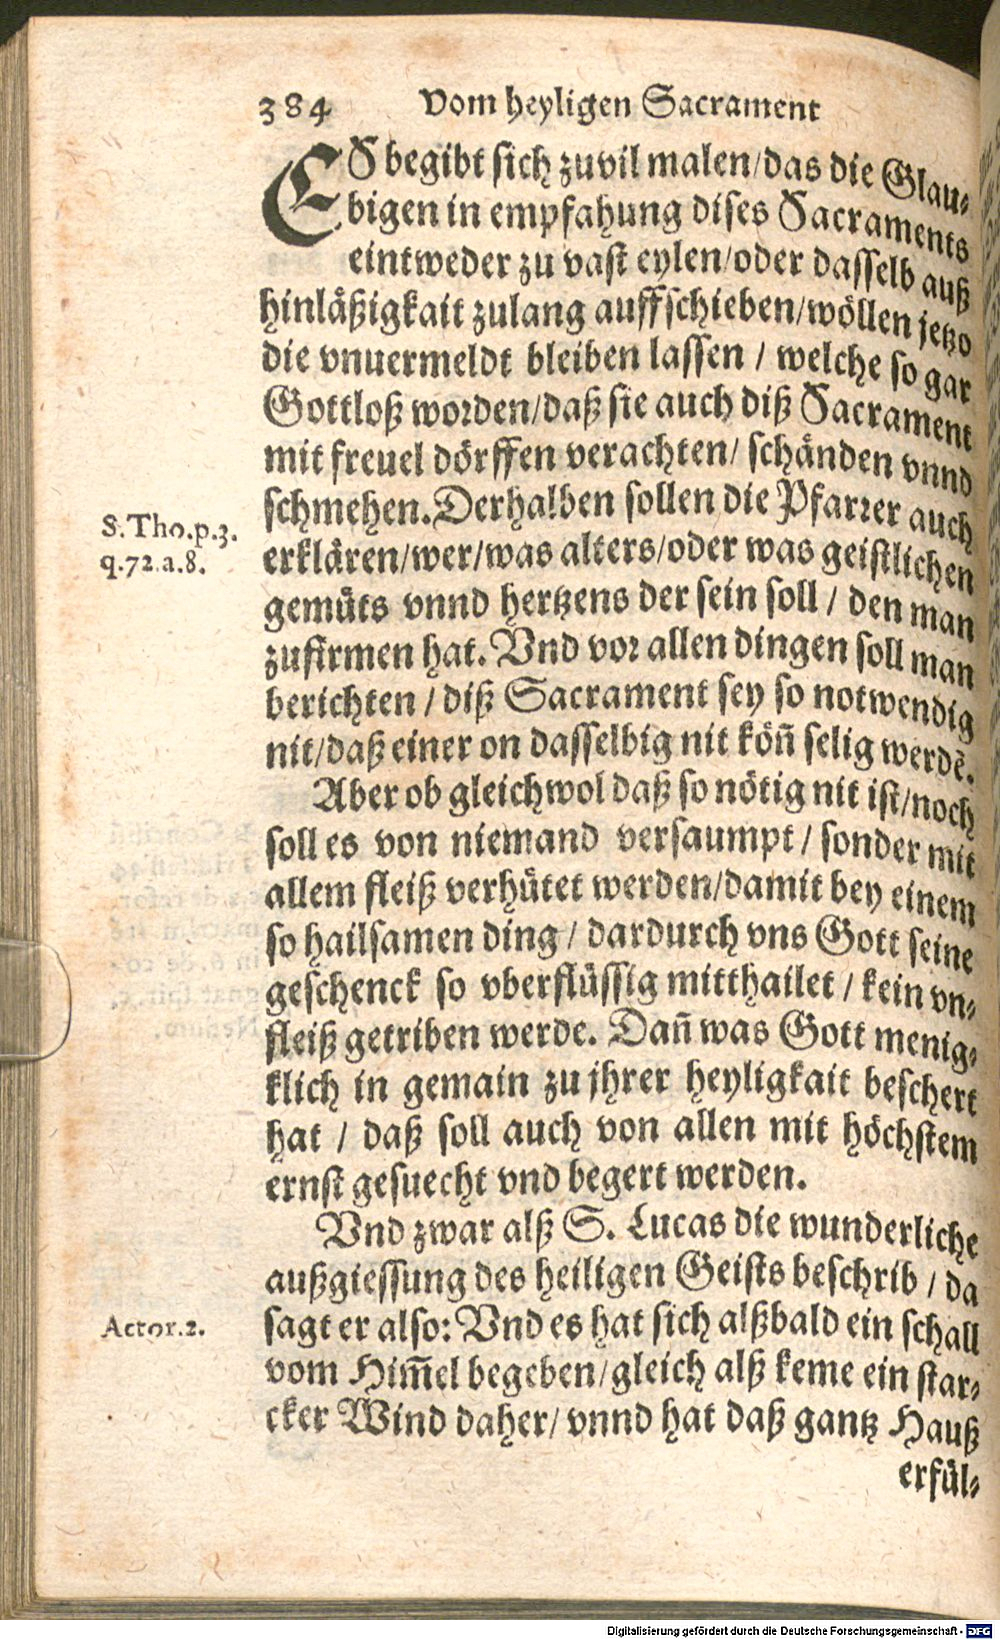 384 Vom heyligen Sacrament
ES begibt sich zuvil malen/das die Glau-
bigen in empfahung dises Sacraments
eintweder zu vast eylen/oder dasselb auß
hinläßigkait zulang auffschieben/wöllen jetzo
die vnuermeldt bleiben lassen / welche so gar
Gottloß worden/daß sie auch diß Sacrament
mit freuel dörffen verachten/ schänden vnnd
schmehen. Derhalben sollen die Pfarrer auch
S. Tho.p.3.
q.72.a.8.
erklären/wer/was alters/oder was geistlichen
gemüts vnnd hertzens der sein soll / den man
zufirmen hat. Vnd vor allen dingen soll man
berichten / diß Sacrament sey so notwendig
nit/daß einer on dasselbig nit köñ selig werdẽ.
Aber ob gleichwol daß so nötig nit ist/noch
soll es von niemand versaumpt / sonder mit
allem fleiß verhütet werden/damit bey einem
so hailsamen ding / dardurch vns Gott seine
geschenck so vberflüssig mitthailet / kein vn-
fleiß getriben werde. Dañ was Gott menig-
klich in gemain zu jhrer heyligkait beschert
hat / daß soll auch von allen mit höchstem
ernst gesuecht vnd begert werden.
Vnd zwar alß S. Lucas die wunderliche
außgiessung des heiligen Geists beschrib / da
Actor.2.
sagt er also: Vnd es hat sich alßbald ein schall
vom Him̃el begeben/gleich alß keme ein star-
cker Wind daher/ vnnd hat daß gantz Hauß
erfül-
Digitalisierung gefördert durch die Deutsche Forschungsgemeinschaft - DFG